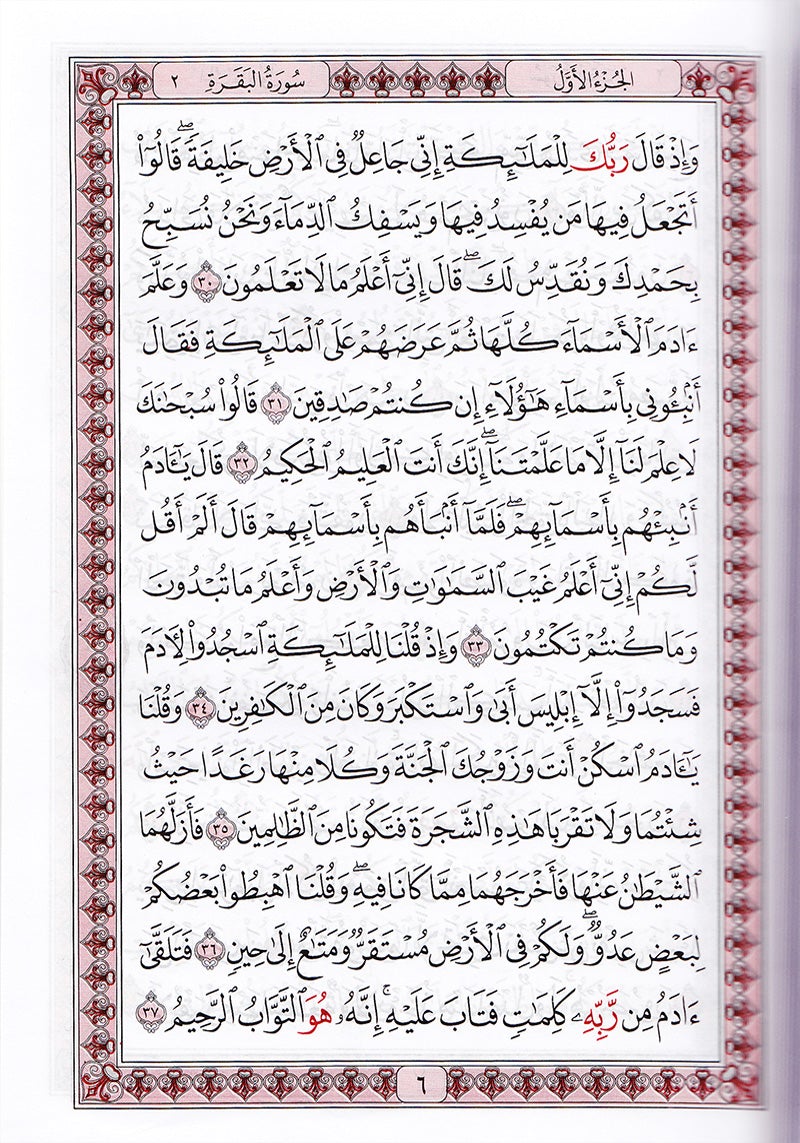 الجُزْءُ الأَوَّلُ
سُورَةُ البَقَرَةِ ٢
وَإِذْ قَالَ رَبُّكَ لِلْمَلَـٰٓئِكَةِ إِنِّى جَاعِلٌ فِى ٱلْأَرْضِ خَلِيفَةً ۖ قَالُوٓا۟
أَتَجْعَلُ فِيهَا مَن يُفْسِدُ فِيهَا وَيَسْفِكُ ٱلدِّمَآءَ وَنَحْنُ نُسَبِّحُ
بِحَمْدِكَ وَنُقَدِّسُ لَكَ ۖ قَالَ إِنِّىٓ أَعْلَمُ مَا لَا تَعْلَمُونَ ٣٠ وَعَلَّمَ
ءَادَمَ ٱلْأَسْمَآءَ كُلَّهَا ثُمَّ عَرَضَهُمْ عَلَى ٱلْمَلَـٰٓئِكَةِ فَقَالَ
أَنۢبِـُٔونِى بِأَسْمَآءِ هَـٰٓؤُلَآءِ إِن كُنتُمْ صَـٰدِقِينَ ٣١ قَالُوا۟ سُبْحَـٰنَكَ
لَا عِلْمَ لَنَآ إِلَّا مَا عَلَّمْتَنَآ ۖ إِنَّكَ أَنتَ ٱلْعَلِيمُ ٱلْحَكِيمُ ٣٢ قَالَ يَـٰٓـَٔادَمُ
أَنۢبِئْهُم بِأَسْمَآئِهِمْ ۖ فَلَمَّآ أَنۢبَأَهُم بِأَسْمَآئِهِمْ قَالَ أَلَمْ أَقُل
لَّكُمْ إِنِّىٓ أَعْلَمُ غَيْبَ ٱلسَّمَـٰوَٰتِ وَٱلْأَرْضِ وَأَعْلَمُ مَا تُبْدُونَ
وَمَا كُنتُمْ تَكْتُمُونَ ٣٣ وَإِذْ قُلْنَا لِلْمَلَـٰٓئِكَةِ ٱسْجُدُوا۟ لِـَٔادَمَ
فَسَجَدُوٓا۟ إِلَّآ إِبْلِيسَ أَبَىٰ وَٱسْتَكْبَرَ وَكَانَ مِنَ ٱلْكَـٰفِرِينَ ٣٤ وَقُلْنَا
يَـٰٓـَٔادَمُ ٱسْكُنْ أَنتَ وَزَوْجُكَ ٱلْجَنَّةَ وَكُلَا مِنْهَا رَغَدًا حَيْثُ
شِئْتُمَا وَلَا تَقْرَبَا هَـٰذِهِ ٱلشَّجَرَةَ فَتَكُونَا مِنَ ٱلظَّـٰلِمِينَ ٣٥ فَأَزَلَّهُمَا
ٱلشَّيْطَـٰنُ عَنْهَا فَأَخْرَجَهُمَا مِمَّا كَانَا فِيهِ ۖ وَقُلْنَا ٱهْبِطُوا۟ بَعْضُكُمْ
لِبَعْضٍ عَدُوٌّ ۖ وَلَكُمْ فِى ٱلْأَرْضِ مُسْتَقَرٌّ وَمَتَـٰعٌ إِلَىٰ حِينٍ ٣٦ فَتَلَقَّىٰٓ
ءَادَمُ مِن رَّبِّهِۦ كَلِمَـٰتٍ فَتَابَ عَلَيْهِ ۚ إِنَّهُۥ هُوَ ٱلتَّوَّابُ ٱلرَّحِيمُ ٣٧
٦